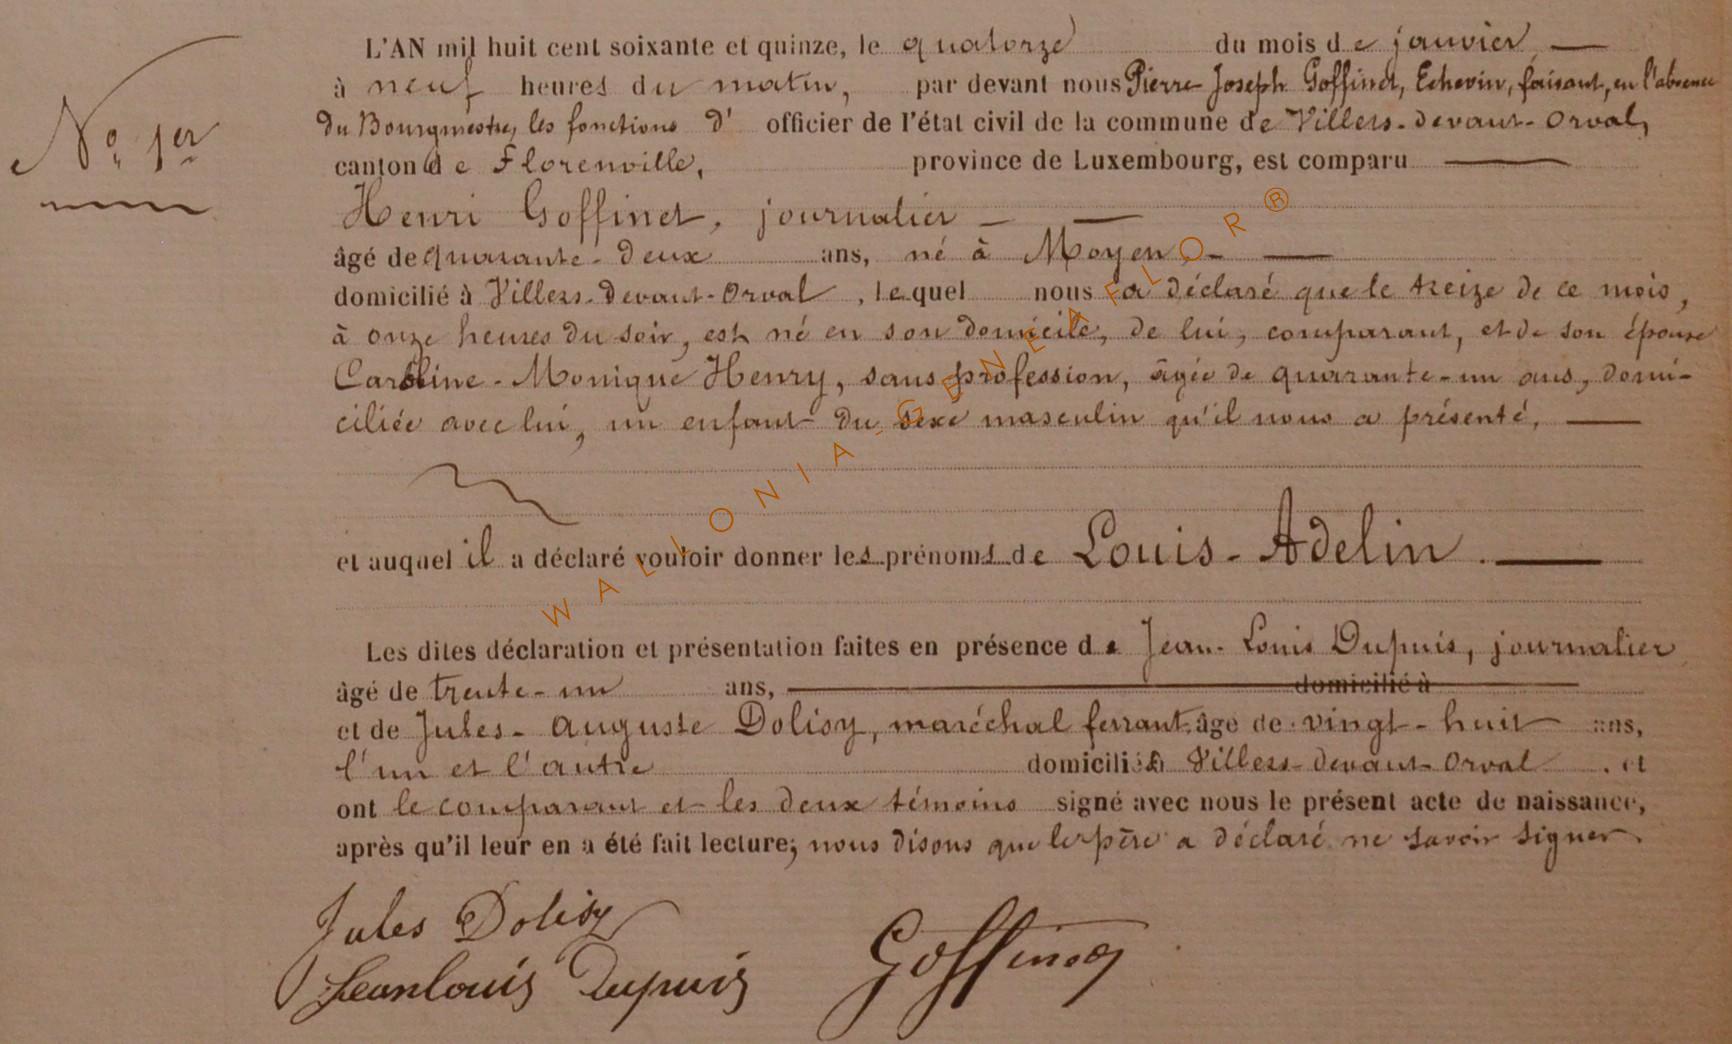 N° 1er
L'AN mil huit cent soixante et quinze, le quatorze du mois de janvier
à neuf heures du matin, par devant nous Pierre Joseph Goffinet, Echevin, faisant, en l'absence
du Bourgmestre, les fonctions d' officier de l'état civil de la commune de Villers-devant-Orval,
canton de Florenville, province de Luxembourg, est comparu
Henri Goffinet, journalier
âgé de quarante-deux ans, né à Moyen
domicilié à Villers-devant-Orval, lequel nous a déclaré que le treize de ce mois,
à onze heures du soir, est né en son domicile, de lui, comparant, et de son épouse
Caroline-Monique Henry, sans profession, âgée de quarante-un ans, domi-
ciliée avec lui, un enfant du sexe masculin qu'il nous a présenté,
et auquel il a déclaré vouloir donner les prénoms de Louis-Adelin
Les dites déclaration et présentation faites en présence de Jean-Louis Dupuis, journalier
âgé de trente-un ans, domicilié à
et de Jules-Auguste Dolisy, maréchal ferrant, âgé de vingt-huit ans,
l'un et l'autre domiciliés à Villers-devant-Orval, et
ont le comparant et les deux témoins signé avec nous le présent acte de naissance,
après qu'il leur en a été fait lecture; nous disons que le père a déclaré ne savoir signer
Jules Dolisy
Jean Louis Dupuis Goffinet
WALLONIA-GENEAFLOR®